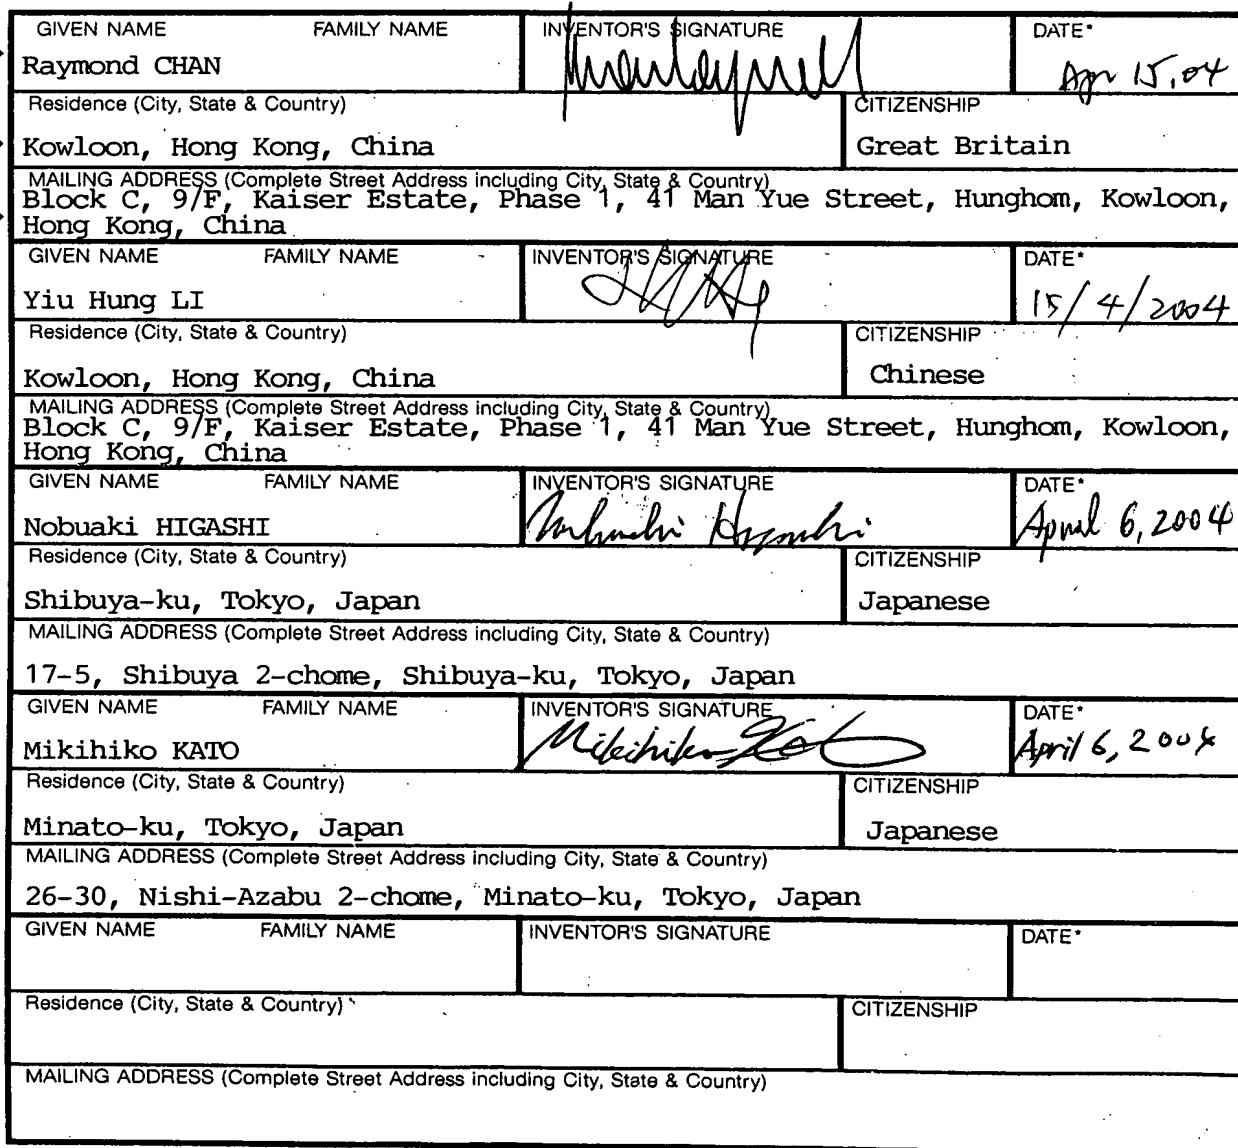 GIVEN NAME FAMILY NAME INVENTOR'S SIGNATURE DATE*
Raymond CHAN Apr 15,04
Residence (City, State & Country) CITIZENSHIP
Kowloon, Hong Kong, China Great Britain
MAILING ADDRESS (Complete Street Address including City, State & Country)
Block C, 9/F, Kaiser Estate, Phase 1, 41 Man Yue Street, Hunghom, Kowloon,
Hong Kong, China
GIVEN NAME FAMILY NAME INVENTOR'S SIGNATURE DATE*
Yiu Hung LI 15/4/2004
Residence (City, State & Country) CITIZENSHIP
Kowloon, Hong Kong, China Chinese
MAILING ADDRESS (Complete Street Address including City, State & Country)
Block C, 9/F, Kaiser Estate, Phase 1, 41 Man Yue Street, Hunghom, Kowloon,
Hong Kong, China
GIVEN NAME FAMILY NAME INVENTOR'S SIGNATURE DATE*
Nobuaki HIGASHI Nobuaki Higashi April 6, 2004
Residence (City, State & Country) CITIZENSHIP
Shibuya-ku, Tokyo, Japan Japanese
MAILING ADDRESS (Complete Street Address including City, State & Country)
17-5, Shibuya 2-chome, Shibuya-ku, Tokyo, Japan
GIVEN NAME FAMILY NAME INVENTOR'S SIGNATURE DATE*
Mikihiko KATO Mikihiko Kato April 6, 2004
Residence (City, State & Country) CITIZENSHIP
Minato-ku, Tokyo, Japan Japanese
MAILING ADDRESS (Complete Street Address including City, State & Country)
26-30, Nishi-Azabu 2-chome, Minato-ku, Tokyo, Japan
GIVEN NAME FAMILY NAME INVENTOR'S SIGNATURE DATE*
Residence (City, State & Country) CITIZENSHIP
MAILING ADDRESS (Complete Street Address including City, State & Country)